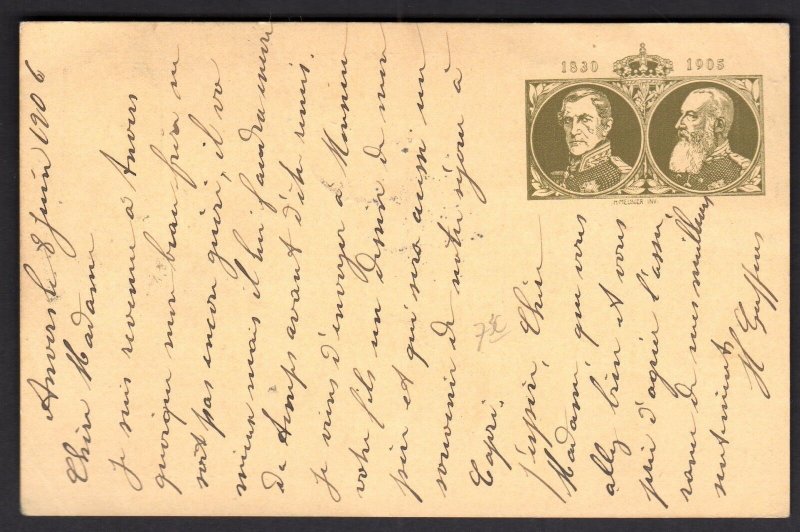 1830 1905
H. MEUNIER INV.
Anvers le 8 Juin 1906
Chère Madame
Je suis revenue à Anvers
quoique mon beau frère ne
soit pas encore guéri, il va
mieux mais il lui faudra encore
du temps avant d'être remis.
Je viens d'envoyer à Monsieur
votre fils un dessin de mon
père et qui sera aussi un
souvenir de notre séjour à
Capri.
J'espère, Chère
Madame que vous
allez bien et vous
prie d'agréer l'assu
rance de mes meilleurs
sentiments
H Guffens